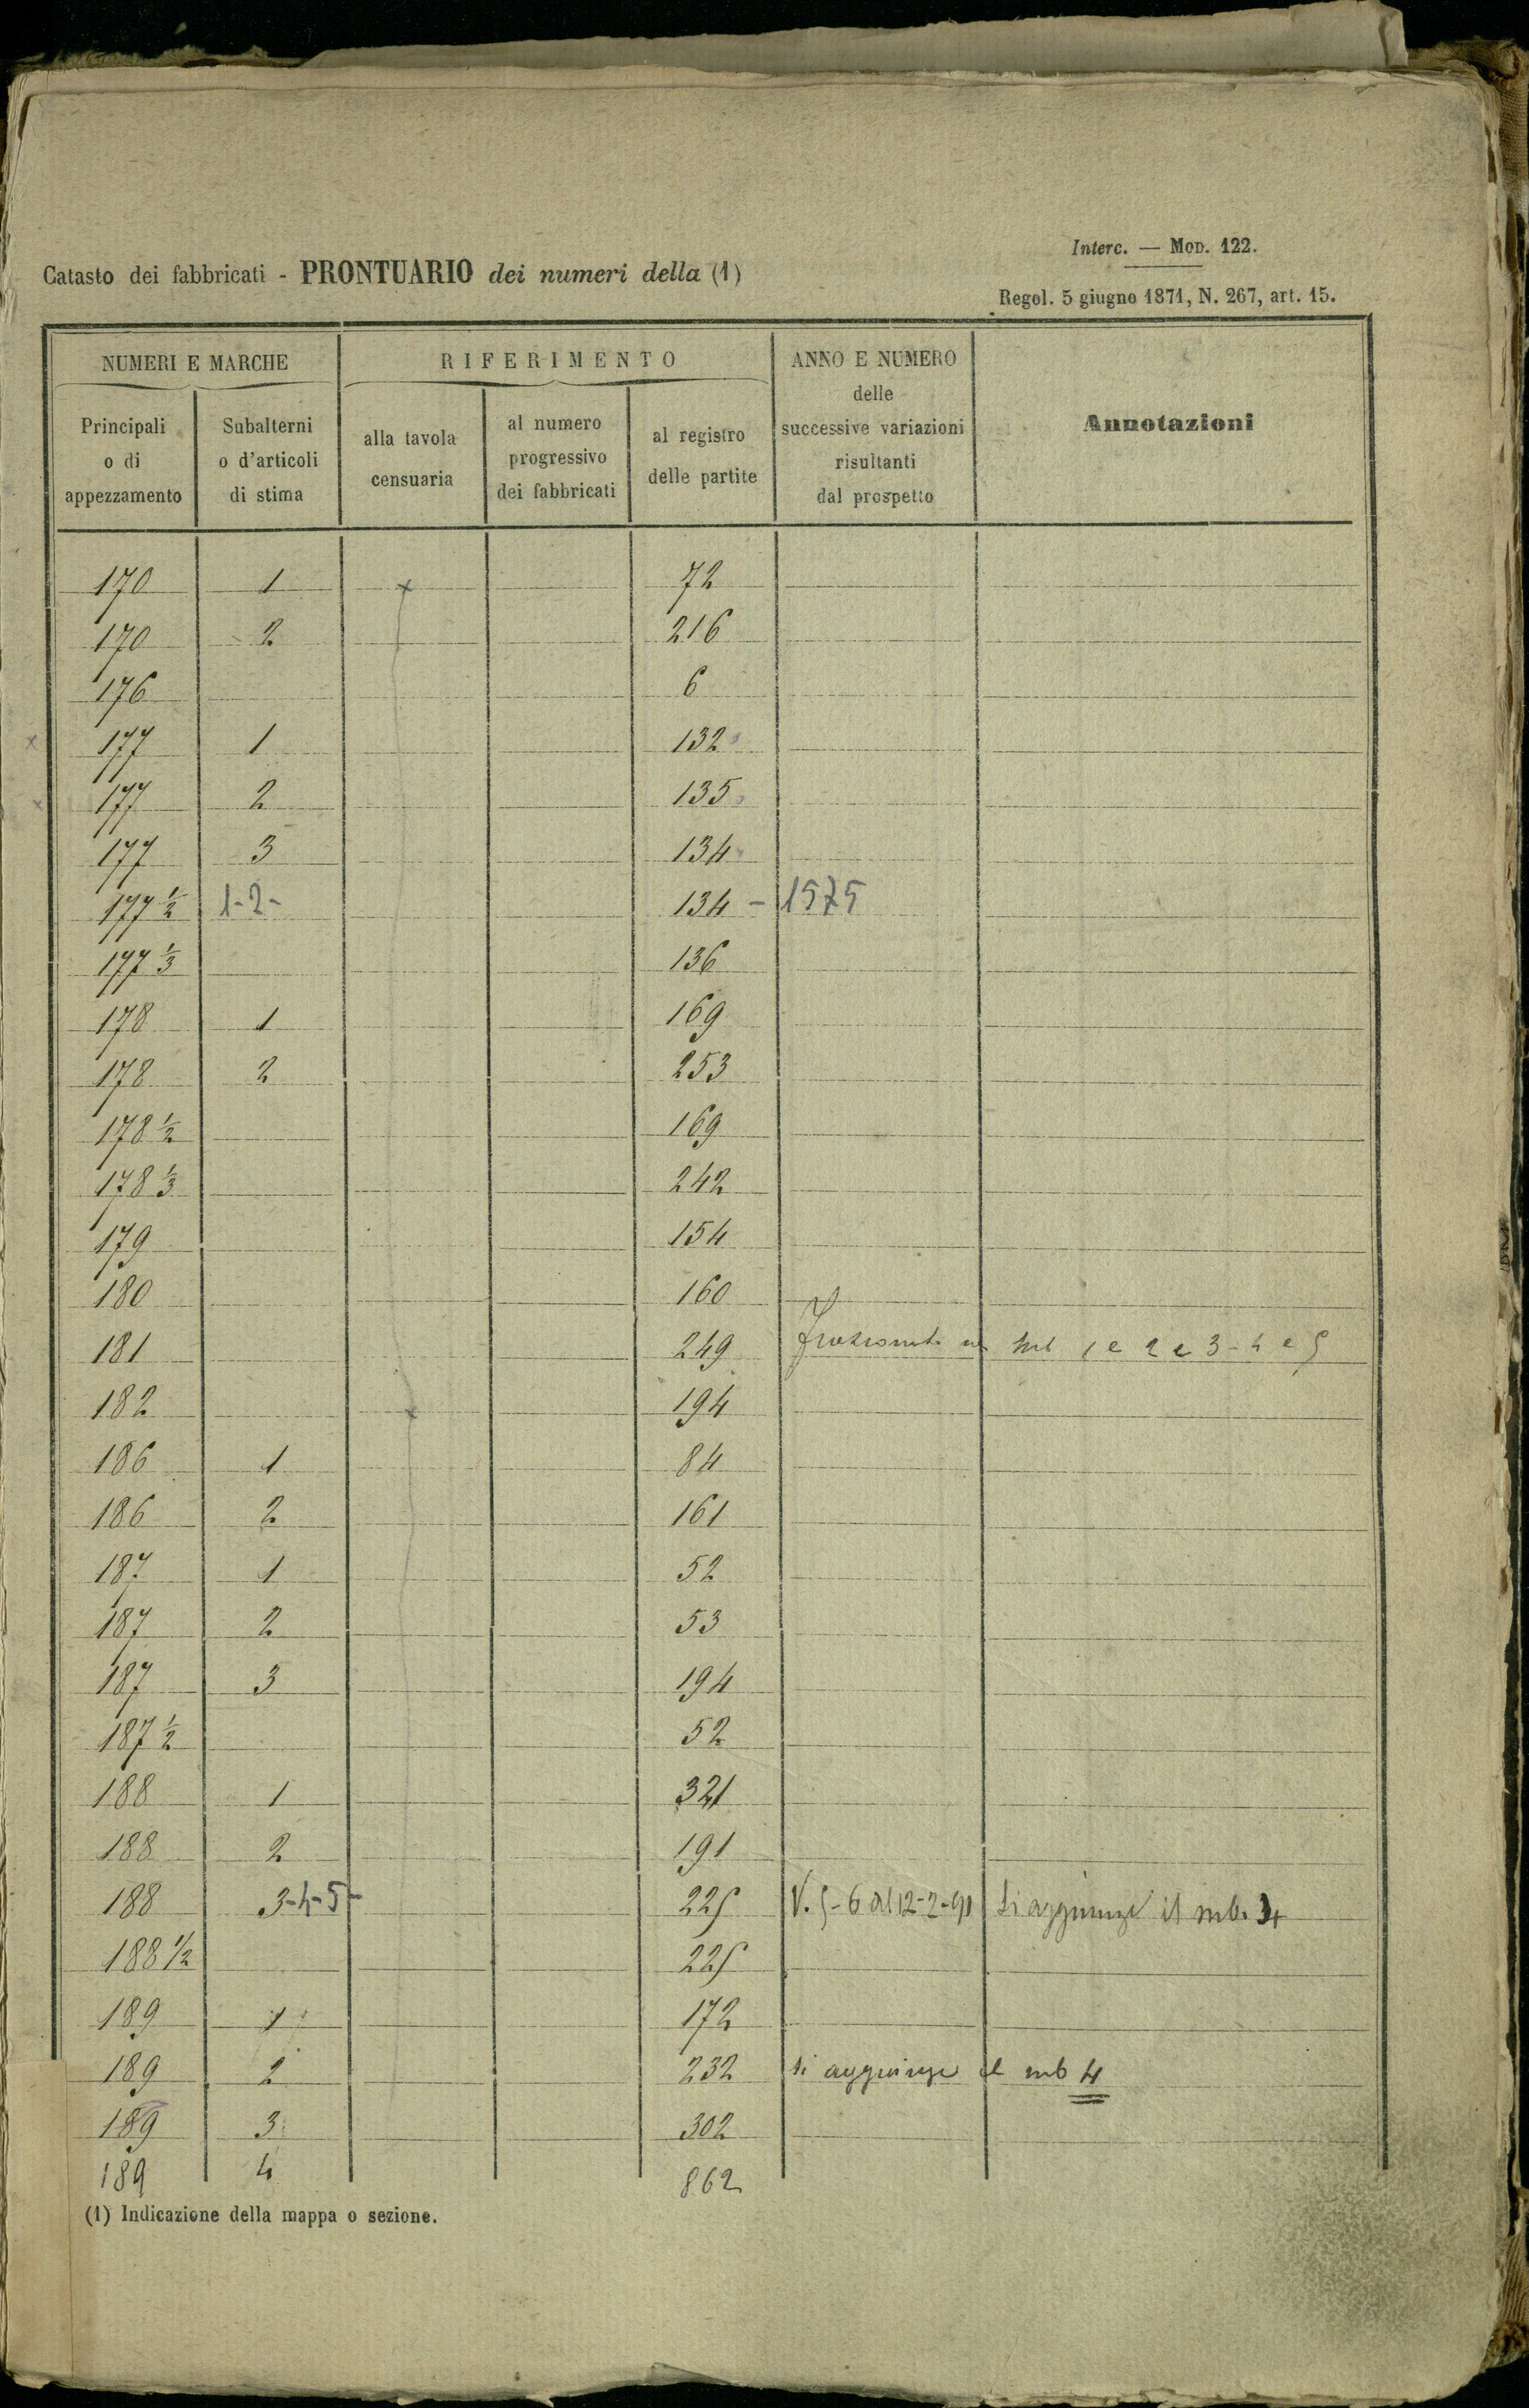 Interc. — Mod. 122.
Catasto dei fabbricati - PRONTUARIO dei numeri della (1)
Regol. 5 giugno 1871, N. 267, art. 15.
NUMERI E MARCHE
RIFERIMENTO
ANNO E NUMERO
delle
successive variazioni
risultanti
dal prospetto
Annotazioni
Principali
o di
appezzamento
Subalterni
o d'articoli
di stima
alla tavola
censuaria
al numero
progressivo
dei fabbricati
al registro
delle partite
170 1 x 72
170 2 216
176 6
x 177 1 132
x 177 2 135
177 3 134
177 1/2 1-2- 134 - 1575
177 1/3 136
178 1 169
178 2 253
178 1/2 169
178 1/3 242
179 154
180 160
181 249 sub 1 e 2 e 3-4 e 5
182 x 194
186 1 84
186 2 161
187 1 52
187 2 53
187 3 194
187 1/2 52
188 1 321
188 2 191
188 3-4-5- 225 V. 5-6 del 12-2-91 Si aggiunge il sub. 4
188 1/2 225
189 1 172
189 2 232 Si aggiunge il sub 4
189 3 302
189 4 862
(1) Indicazione della mappa o sezione.